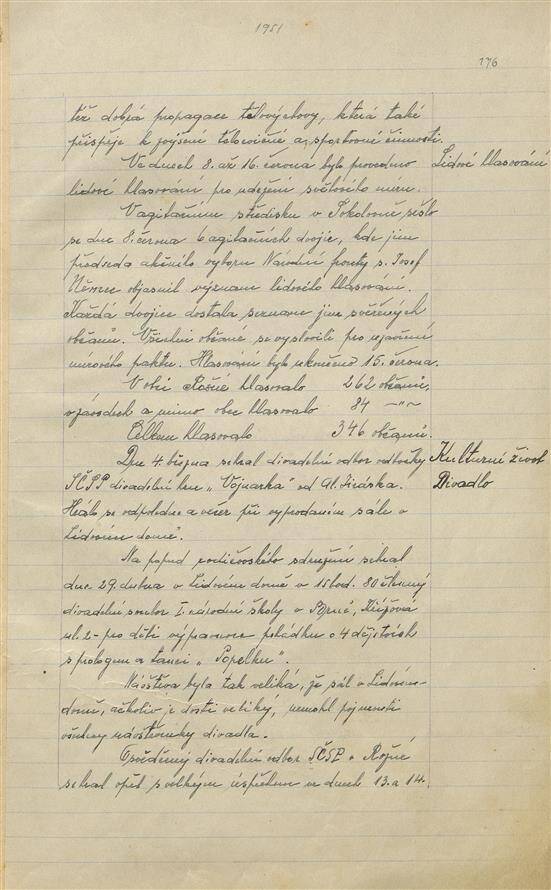 1951
176
též dobrá propagace tělovýchovy, která také
přispěje k zvýšené tělocvičné a sportovní činnosti.
Ve dnech 8. až 16. června bylo provedeno
Lidové hlasování
lidové hlasování pro udržení světového míru.
V agitačním středisku v Sokolovně sešlo
se dne 8. června 6 agitačních dvojic, kde jim
předseda akčního výboru Národní fronty s. Josef
Němec objasnil význam lidového hlasování.
Každá dvojice dostala seznam jim svěřených
občanů. Všichni občané se vyslovili pro uzavření
mírového paktu. Hlasování bylo ukončeno 15. června.
V obci Rožné hlasovalo 262 občanů,
v závodech a mimo obec hlasovalo 84 -"-
Celkem hlasovalo 346 občanů.
Dne 4. března sehrál divadelní odbor odbočky
Kulturní život
SČSP divadelní hru „Vojnarka" od Al. Jiráska.
Divadlo
Hrálo se odpoledne a večer při vyprodaném sále v
Lidovém domě.
Na popud rodičovského sdružení sehrál
dne 29. dubna v Lidovém domě v 15 hod. 80 členný
divadelní soubor I. národní školy v Brně, Křížová
ul. 2 - pro děti výpravnou pohádku o 4 dějstvích
s prologem a tanci „Popelku".
Návštěva byla tak veliká, že sál v Lidovém
domě, ačkoliv je dosti veliký, nemohl pojmouti
všechny návštěvníky divadla.
Osvědčený divadelní odbor SČSP v Rožné
sehrál opět s velkým úspěchem ve dnech 13. a 14.